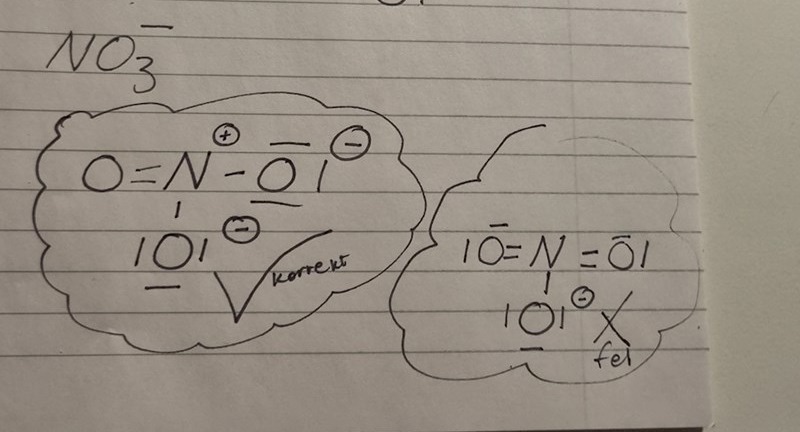 NO₃⁻
O=N⊕-O̲̅|⊖
|
|O̲|⊖
korrekt
|O̅=N=O̅|
|
|O̲|⊖
fel